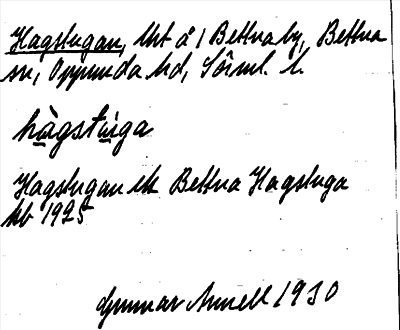 Hagstugan, lht å 1 Bettnaby, Bettna
sn, Oppunda hd, Sörml. l.
hàgstùga
Hagstugan ek Bettna Hagstuga
hb 1925
Gunnar Annell 1930